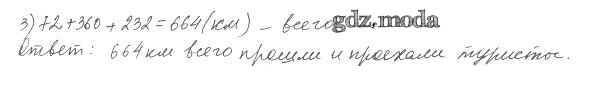 3) 72+360+232=664(км) – всего gdz.moda
Ответ: 664 км всего прошли и проехали туристы.